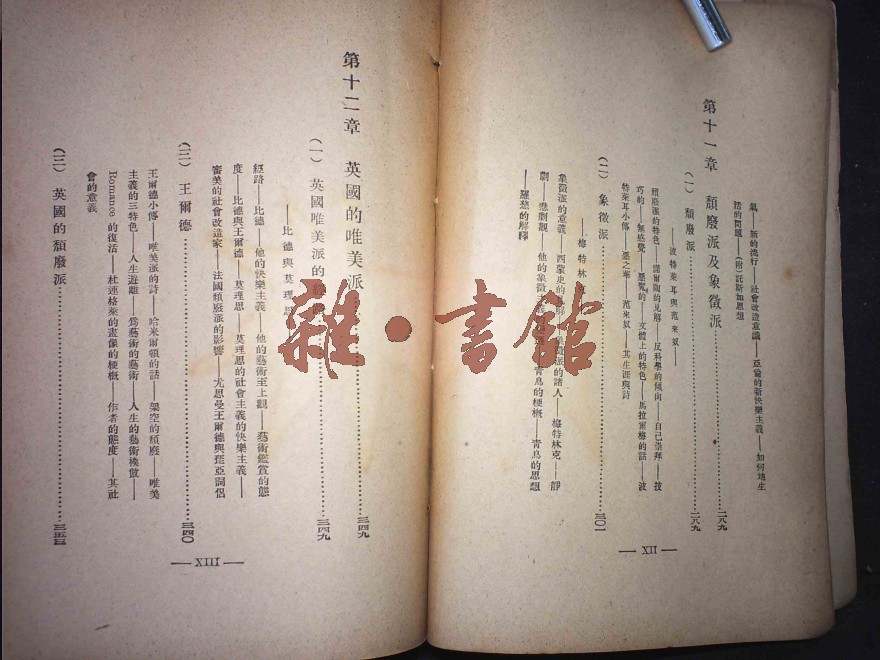 氣——新的流行——社會改造意識——亞倫的新快樂主義——如何地生
活的問題——(附)託斯加思想
第十一章　頹廢派及象徵派……二八九
(一)頹廢派……二八九
——波特萊耳與范來奴——
頹廢派的特色——諾爾陶的見解——反科學的傾向——自己崇拜——技
巧的——無感覺——惡魔的——文體上的特色——馬拉爾梅的話——波
特萊耳小傳——惡之華——范來奴——其生涯與詩
(二)象徵派……三〇一
——梅特林克
象徵派的意義——西蒙史的見解——象徵派的諸人——梅特林克——靜
劇——悲劇觀——他的象徵主義 青鳥的梗概——青鳥的思想
——羅愁的解釋
— XII —
第十二章　英國的唯美派……三四九
(一)英國唯美派的經路……三四九
——比德與莫理思
經路——比德——他的快樂主義——他的藝術至上觀——藝術鑑賞的態
度——比德與王爾德——莫理思——莫理思的社會主義的快樂主義——
審美的社會改造家——法國頹廢派的影響——尤思曼王爾德與琵亞詞侶
(二)王爾德……三四〇
王爾德小傳——唯美派的詩——哈米爾頓的話——架空的頹廢——唯美
主義的三特色——人生遊離——爲藝術的藝術——人生的藝術模倣——
Romance 的復活——杜連格萊的畫像的梗概——作者的態度——其社
會的意義
(三)英國的頹廢派……三五三
— XIII —
雜·書館